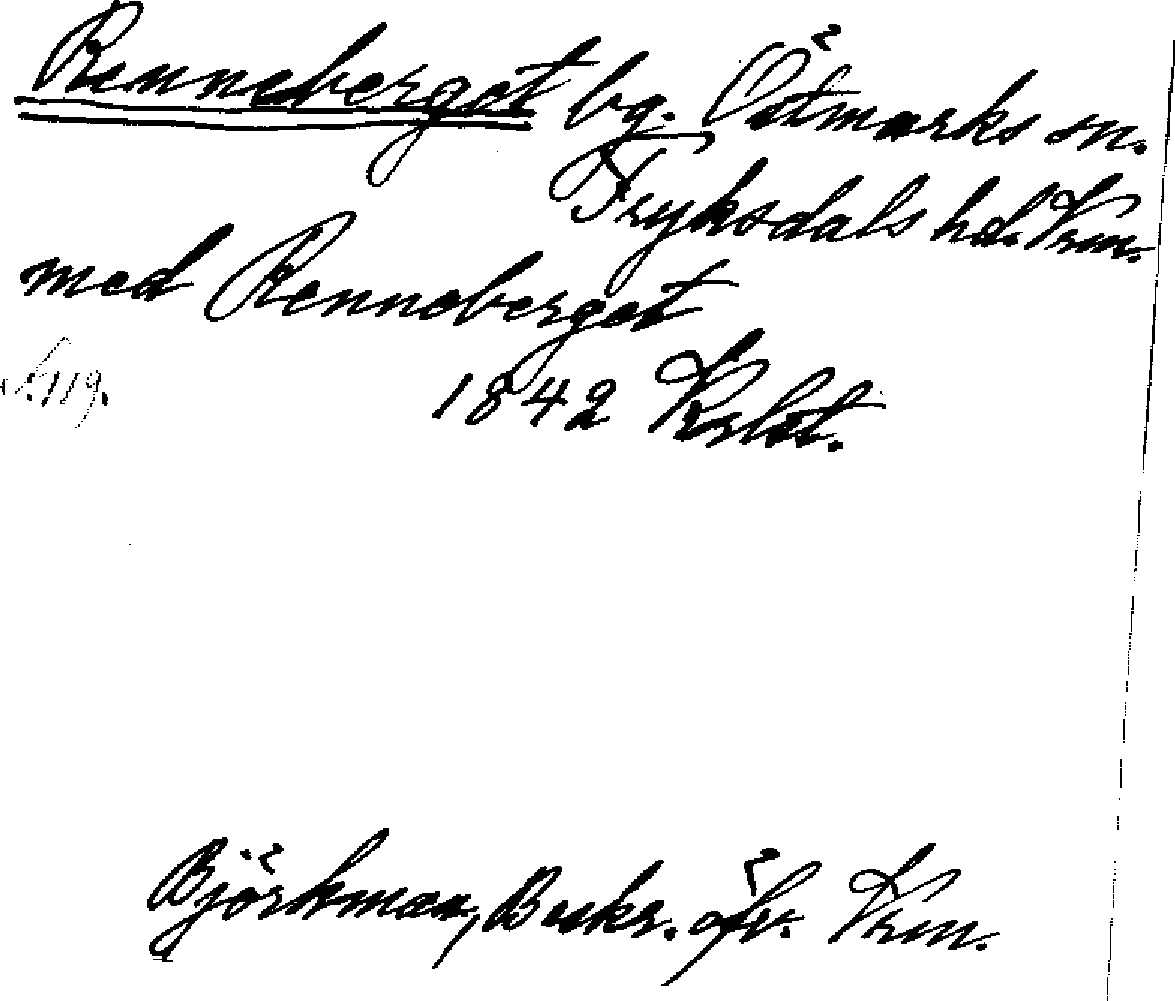 Renneberget bg. Östmarks sn.
Fryksdals hd. Vrm.
med Renneberget
119. 1842 Krlst.
Björkman, Beskr. öfv. Vrm.